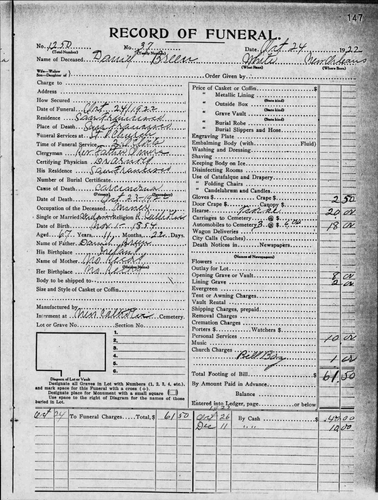 147
RECORD OF FUNERAL.
No. 1250 No. 37 Date Oct. 24 1922
(Total Number) (Yearly Number)
Name of Deceased Daniel Breen White
(What Race)
Wife—Widow
Son—Daughter of Order Given by
Charge to
Address
How Secured
Date of Funeral Oct 24/1922
Residence San Francisco
Place of Death San Francisco
Funeral Services at St. Church
Time of Funeral Service
Clergyman Rev Father
Certifying Physician Dr
His Residence San Francisco
Number of Burial Certificate
Cause of Death Carcinoma
Date of Death Oct 22-1922
Occupation of the Deceased Miner
Single or Married Religion R. Catholic
Date of Birth Nov. 1854
Aged 67 Years, 11 Months, 22 Days.
Name of Father Daniel Breen
His Birthplace Ireland
Name of Mother No Record
Her Birthplace No Record
Body to be shipped to
Size and Style of Casket or Coffin
Manufactured by
Interment at New Catholic Cemetery.
Lot or Grave No. Section No.
1
2
3
4
5
6
Diagram of Lot or Vault
Designate all Graves in Lot with Numbers (1, 2, 3, 4, etc.),
and mark space for this Funeral with a cross (+).
Designate place for Monument with a small square
Use space to the right of Diagram for the names of those
Buried in Lot.
Price of Casket or Coffin
" Metallic Lining
(State kind)
" Outside Box
(State kind)
" Grave Vault
(State kind)
" Burial Robe
(State kind)
" Burial Slippers and Hose
Engraving Plate
Embalming Body (with Fluid)
Washing and Dressing
Shaving
Keeping Body on Ice
Disinfecting Rooms
Use of Catafalque and Drapery
" Folding Chairs
" Candelabrum and Candles
Gloves $ Crape $ 2 50
Door Crape $ Canopy $
Hearse 20 00
Carriages to Cemetery @ $
Automobiles to Cemetery 3 @ $ 6.00 18 00
Wagon Deliveries
City Calls (Coaches)
Death Notices in Newspapers
(Names of Newspapers)
Flowers
Outlay for Lot
Opening Grave or Vault 8 00
Lining Grave 2 00
Evergreen
Tent or Awning Charges
Vault Rental
Shipping Charges, prepaid
Removal Charges
Cremation Charges
Porters $ Watchers $
Personal Services
Music 10 00
Church Charges
1 00
Total Footing of Bill $ 61 50
By Amount Paid in Advance
Balance
Entered into Ledger, page or below
Oct 24 To Funeral Charges Total, $ 61 50
Oct 26 By Cash
Dec 11 " " 10 00